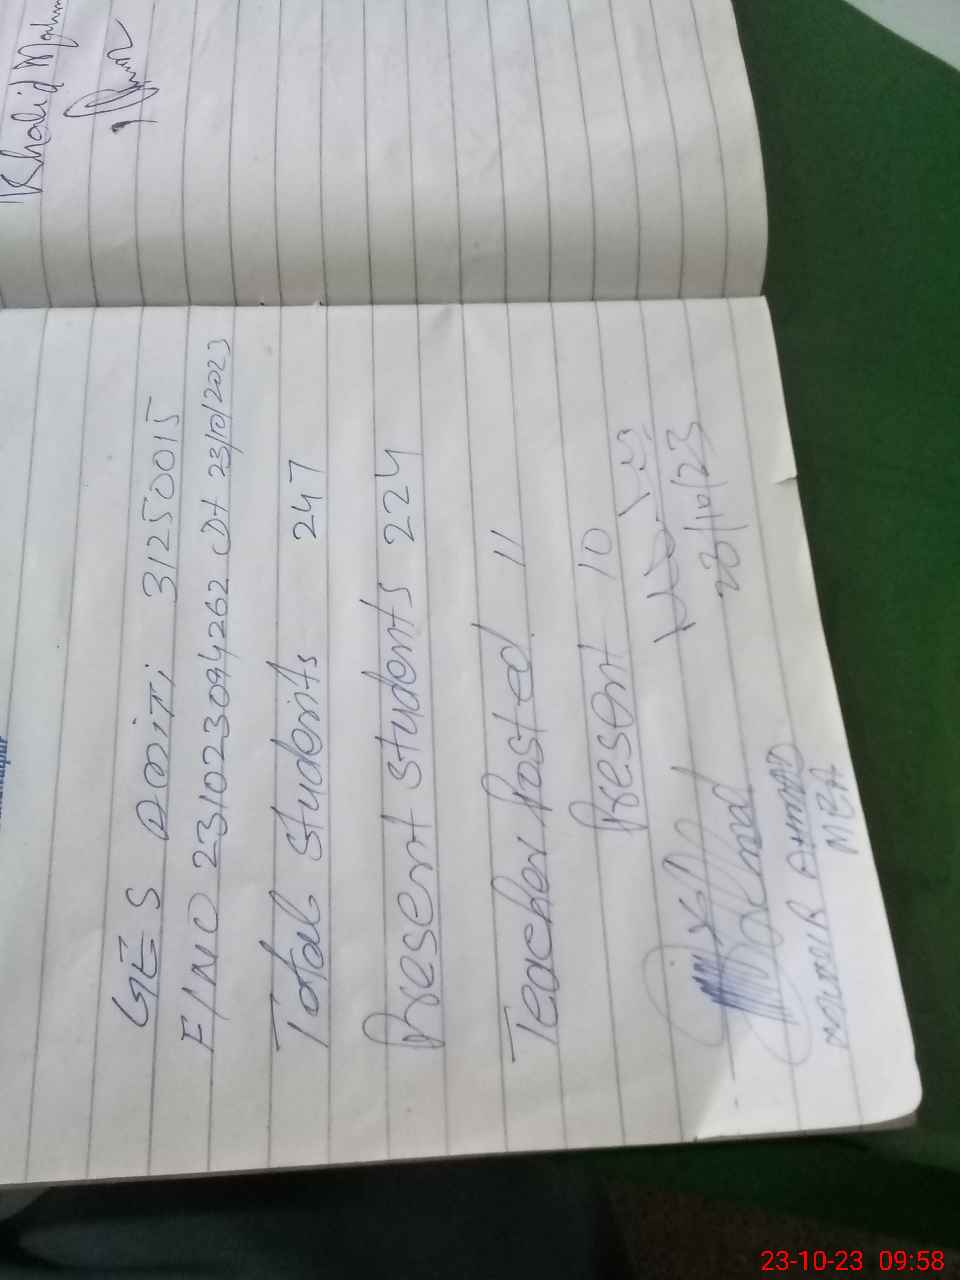 Khalid
GES Doiti 31250015
F/NO 231023094262 Dt 23/10/2023
Total students 247
Present students 224
Teacher Posted 11
Present 10
23/10/23
AHMAD
MEA
23-10-23 09:58